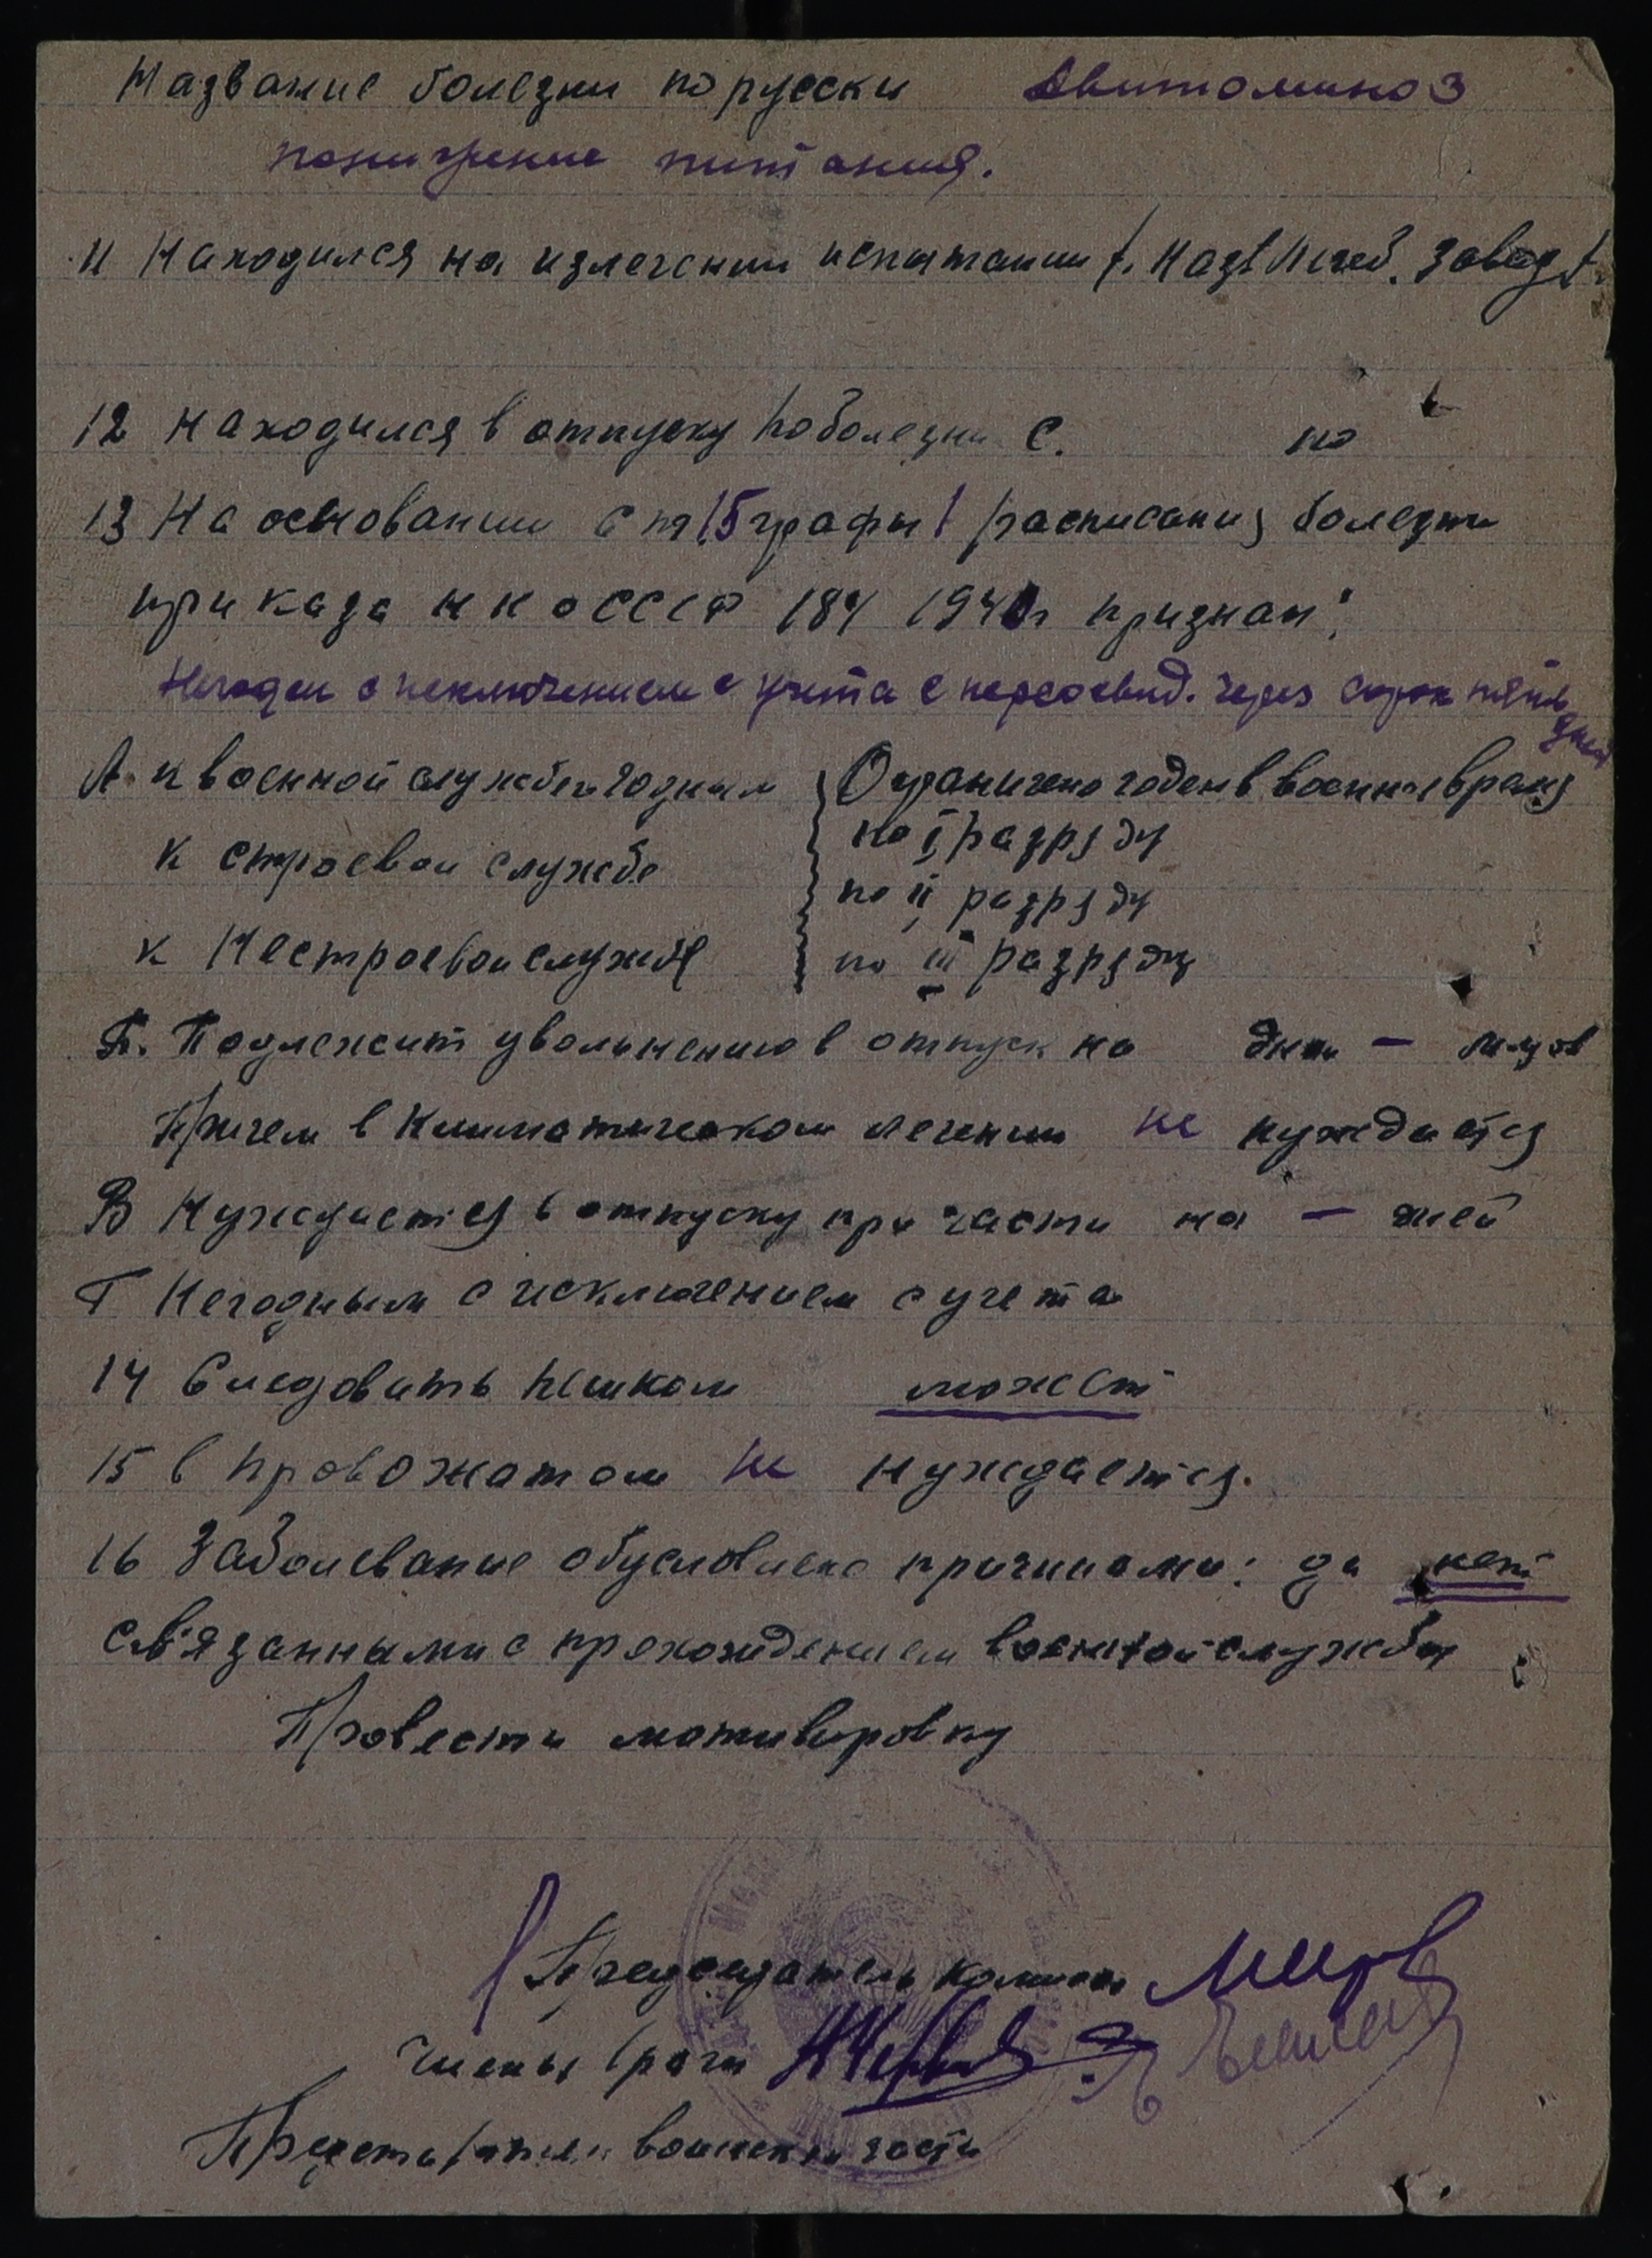 Название болезни по русски Авитоминоз
понижение питания.
11 Находился на излечении испытании /. Назв Лечеб. Завед/.
12 Находился в отпуску по болезни с. по
13 На основании ст 15 графы 1 расписания болезни
приказа НКОССCР 184 1940г признан:
Негоден с исключением с учета с переосвид. через сорок пять
дней
А. к военной службе годным
к строевой службе
к Нестроевой службе
Ограничено годен в военное время
по I разряду
по II разряду
по III разряду
Б. Подлежит увольнению в отпуск на дни — м-цов
Причем в климатическом лечении не нуждается
В Нуждается в отпуску при части на — дней
Г Негодным с исключением с учета
14 Следовать пешком может
15 в провожатом не нуждается.
16 Заболевание обусловлено причинами: да нет
связанными с прохождением военной службы
Провести мотивировку
Председатель комисии
Члены врачи
Представители воинской части